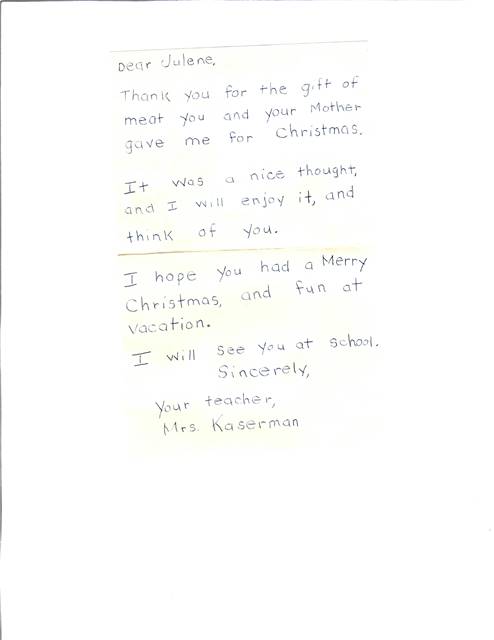 Dear Julene,
Thank you for the gift of
meat you and your Mother
gave me for Christmas.
It was a nice thought,
and I will enjoy it, and
think of you.
I hope you had a Merry
Christmas, and fun at
vacation.
I will see you at school.
Sincerely,
Your teacher,
Mrs. Kaserman